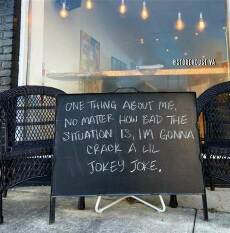 @STOREHOUSE.VA
ONE THING ABOUT ME,
NO MATTER HOW BAD THE
SITUATION IS, I'M GONNA
CRACK A LIL
JOKEY JOKE.